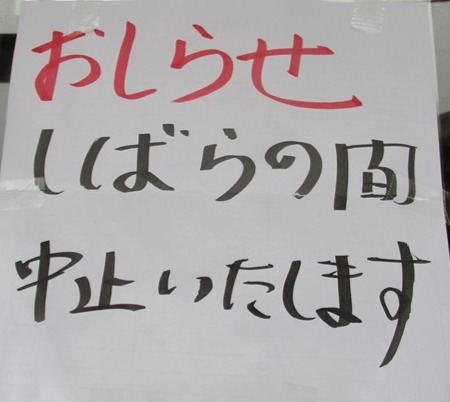 おしらせ
しばらの間
中止いたします